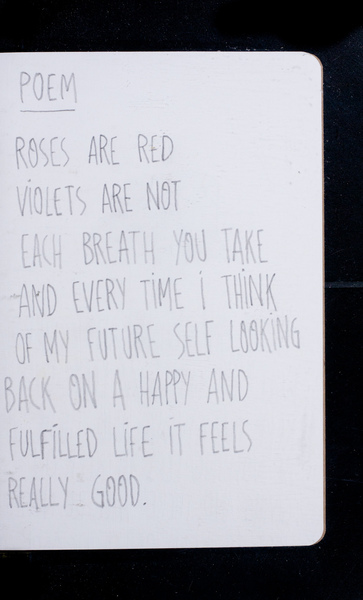 POEM
ROSES ARE RED
ViOLETS ARE NOT
EACH BREATH YOU TAKE
AND EVERY TiME i THiNK
OF MY FUTURE SELF LOOKiNG
BACK ON A HAPPY AND
FULFiLLED LiFE iT FEELS
REALLY GOOD.